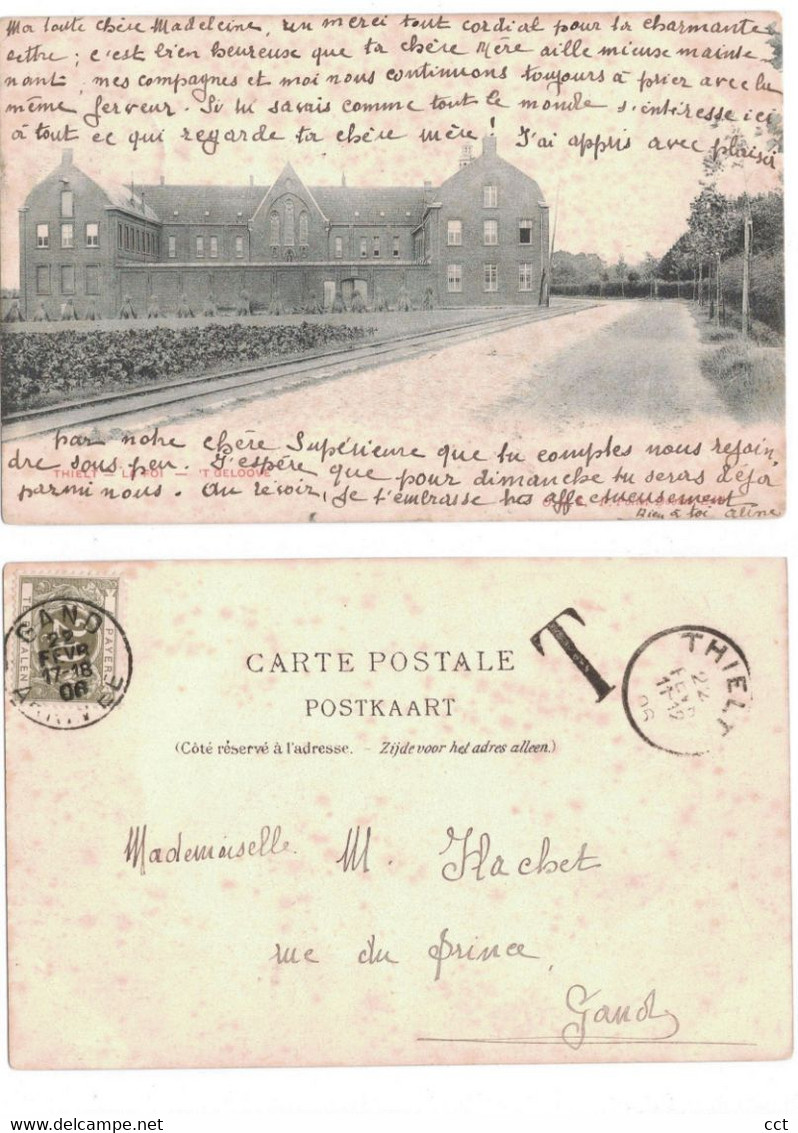 Ma toute chère Madeleine, un merci tout cordial pour ta charmante
lettre ; c'est bien heureuse que ta chère Mère aille mieux mainte
nant, mes compagnes et moi nous continuons toujours à prier avec la
même ferveur. Si tu savais comme tout le monde s'intéresse ici
à tout ce qui regarde ta chère mère ! J'ai appris avec plaisir
par notre chère Supérieure que tu comptes nous rejoin
dre sous peu. J'espère que pour dimanche tu seras déjà
THIELT — LA FOI — 'T GELOOVE
parmi nous. Au revoir, je t'embrasse très affectueusement
Dieu à toi Aline
GAND
22
FEVR
17-18
06
ARRIVEE
A PAYER
TE BETALEN
T
THIELT
22
FEVR
11-12
06
CARTE POSTALE
POSTKAART
(Côté réservé à l'adresse. – Zijde voor het adres alleen.)
Mademoiselle M. Hachet
rue du Prince,
Gand
cct